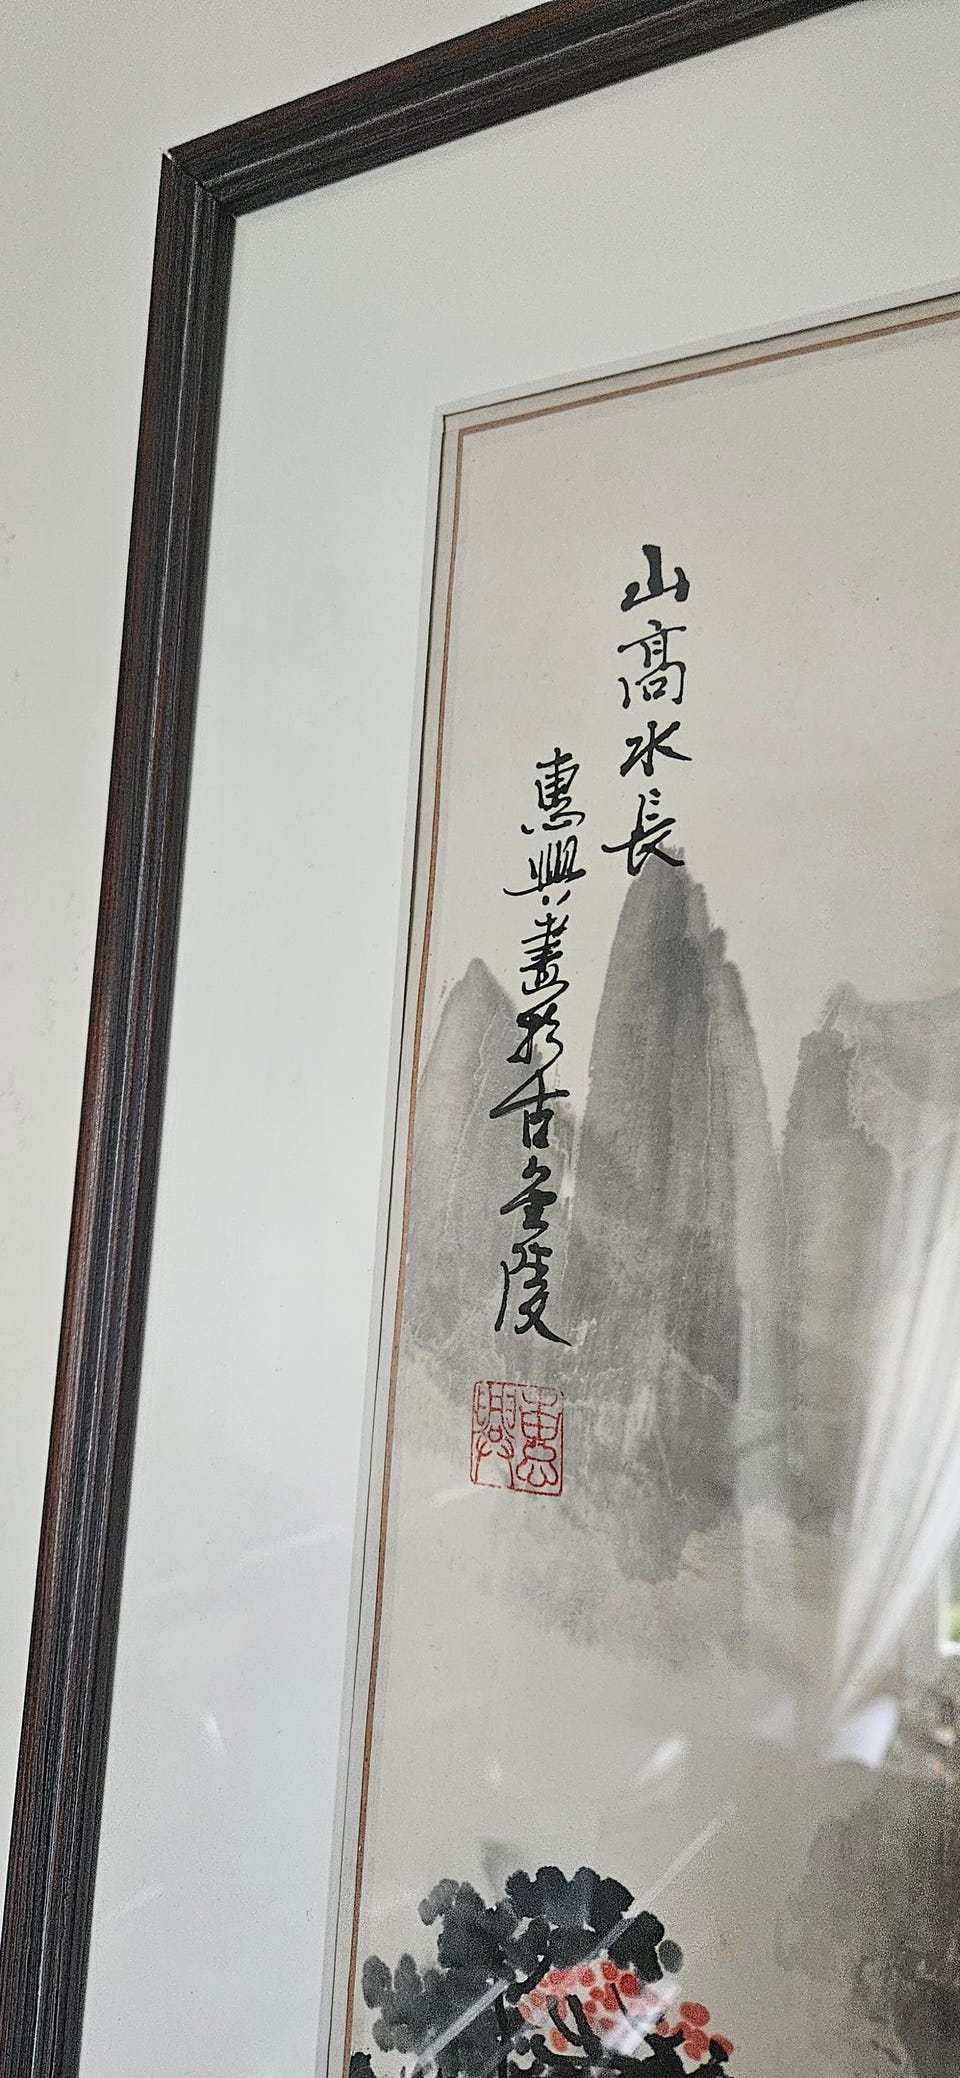 山高水長
惠興畫於古金陵
惠興